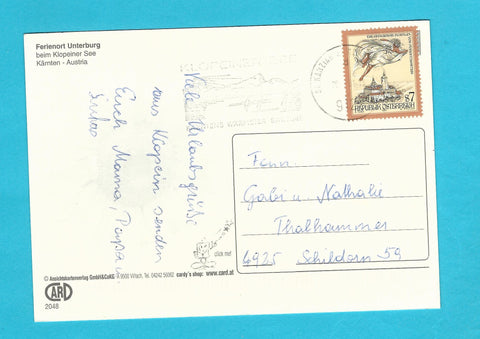 Ferienort Unterburg
beim Klopeiner See
Kärnten - Austria
KLOPEINER SEE
Viele Urlaubsgrüße
aus Klopein senden
Euch Mama, Papa u.
Fam.
Gabi u. Nathalie
Thalhammer
4925 Schildorn 59
REPUBLIK ÖSTERREICH
S7
click me!
© Ansichtskartenverlag GmbH&CoKG A 9500 Villach, Tel. 04242 55062 cardy's shop: www.card.at
CARD
2048